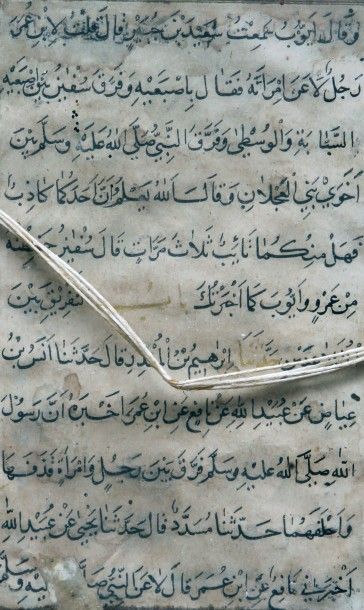 وقال ايوب سمعت سعيد بن جبير قال قلت لابن عمر
رجل لاعن امراته فقال باصبعيه وفرق سفين بين اصبعيه
السبابة والوسطى وفرق النبي صلى الله عليه وسلم بين
اخوي بني العجلان وقال الله يعلم ان احدكما كاذب
فهل منكما تائب ثلاث مرات قال سفين حفظته
من عمرو وايوب كما اخبرتك باب التفريق بين
ابرهيم بن المنذر قال حدثنا انس بن
عياض عن عبيد الله عن نافع عن ابن عمر اخبره ان رسول
الله صلى الله عليه وسلم فرق بين رجل وامراة قذفها
واحلفهما حدثنا مسدد قال حدثنا يحيى عن عبيد الله
اخبرني نافع عن ابن عمر قال لاعن النبي صلى